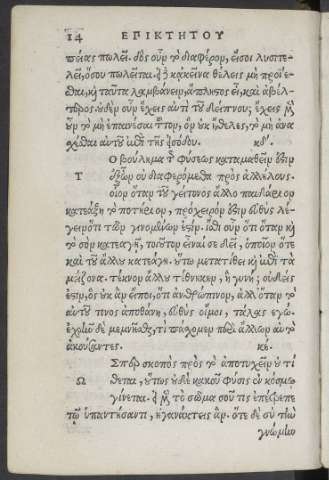 14 ΕΠΙΚΤΗΤΟΥ
πείας πωλεῖ. δὸς οὖν τὸ διαφέρον, εἴ σοι λυσιτε-
λεῖ, ὅσου πωλεῖται. εἰ δὲ κἀκεῖνα θέλεις μὴ προΐε-
σθαι, καὶ ταῦτα λαμβάνειν, ἄπληστος εἶ, καὶ ἀβέλ-
τερος. οὐδὲν οὖν ἔχεις ἀντὶ τοῦ δείπνου; ἔχεις μὲν
οὖν τὸ μὴ ἐπαινέσαι τοῦτον, ὃν οὐκ ἤθελες, τὸ μὴ ἀνα-
σχέσθαι αὐτοῦ ἐπὶ τῆς εἰσόδου. κδ΄.
Ο βούλημα τῆς φύσεως καταμαθεῖν ἐστιν
Τ ἐξ ὧν οὐ διαφερόμεθα πρὸς ἀλλήλους.
οἷον ὅταν τοῦ γείτονος ἄλλο παιδάριον
κατεάξῃ τὸ ποτήριον, πρόχειρόν ἐστιν εὐθὺς λέ-
γειν ὅτι τῶν γινομένων ἐστίν. ἴσθι οὖν ὅτι ὅταν καὶ
τὸ σὸν κατεαγῇ, τοιοῦτον εἶναί σε δεῖ, ὁποῖον ὅτε
καὶ τοῦ ἄλλου κατεάγη. οὕτω μετατίθει καὶ ἐπὶ τὰ
μείζονα. τέκνον ἄλλου τέθνηκεν, ἢ γυνή; οὐδείς
ἐστιν, ὃς οὐκ ἂν εἴποι, ὅτι ἀνθρώπινον, ἀλλ' ὅταν τὸ
αὐτοῦ τινος ἀποθάνῃ, εὐθὺς οἴμοι, τάλας ἐγώ.
ἐχρῆν δὲ μεμνῆσθαι, τί πάσχομεν περὶ ἄλλων αὐτὸ
ἀκούσαντες. κε.
Σπερ σκοπὸς πρὸς τὸ ἀποτυχεῖν οὐ τί
Ω θεται, οὕτως οὐδὲ κακοῦ φύσις ἐν κόσμῳ
γίνεται. εἰ μὲν τὸ σῶμα σοῦ τις ἐπέτρεπε
τῷ ὑπαντήσαντι, ἠγανάκτεις ἄν. ὅτε δὲ σὺ τὴν
γνώμην